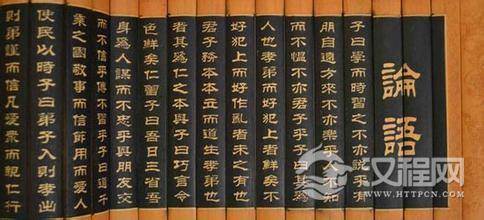 論語
子曰學而時習之不亦說乎有
朋自遠方來不亦樂乎人不知
而不慍不亦君子乎有子曰其為
人也孝弟而好犯上者鮮矣不
好犯上而好作亂者未之有也
君子務本本立而道生孝弟也
者其為仁之本與子曰巧言令
色鮮矣仁曾子曰吾日三省吾
身為人謀而不忠乎與朋友交
而不信乎傳不習乎子曰道千
乘之國敬事而信節用而愛人
使民以時子曰弟子入則孝出
則弟謹而信凡愛眾而親仁行
汉程网
WWW.HTTPCN.COM